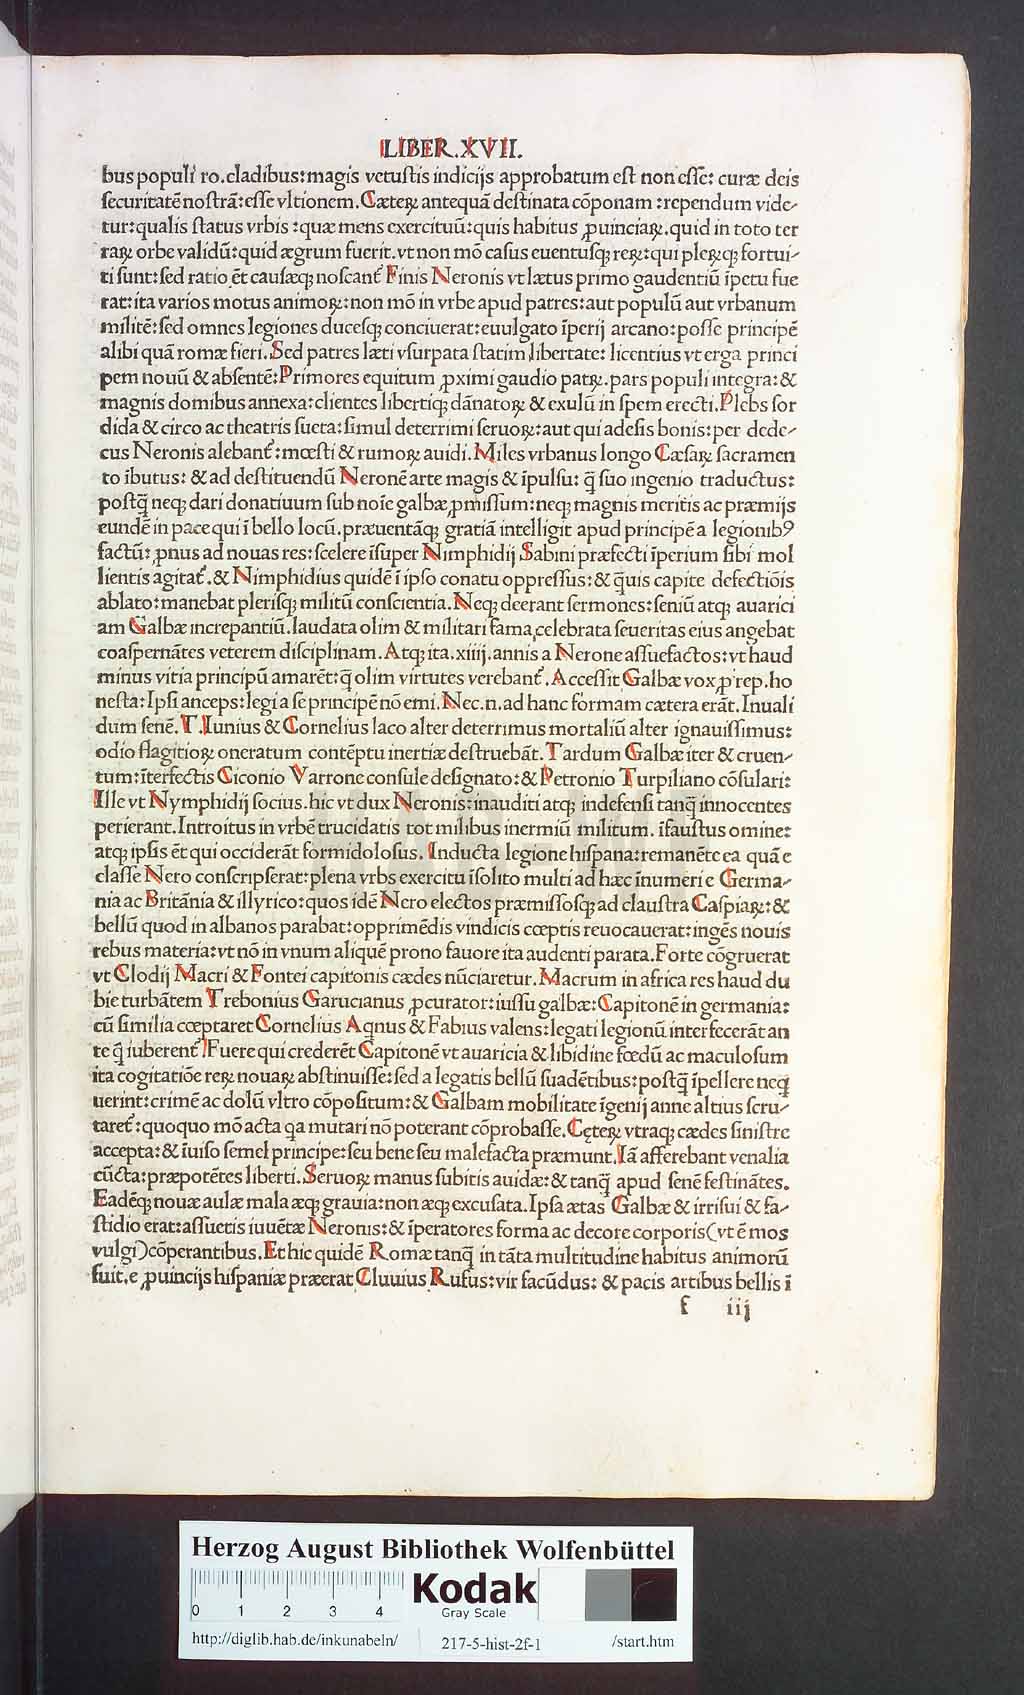 LIBER.XVII.
bus populi ro.cladibus:magis vetustis indicijs approbatum est non esse: curæ deis
securitatē nostrā:esse vltionem.Cæteꝝ antequā destinata cōponam :rependum vide-
tur:qualis status vrbis :quæ mens exercituū:quis habitus ꝓuinciaꝝ.quid in toto ter
raꝝ orbe validū:quid ægrum fuerit.vt non mō casus euentusqꝫ reꝝ:qui pleꝝqꝫ fortui-
ti sunt:sed ratio ēt causæqꝫ noscant᷑ Finis Neronis vt lætus primo gaudentiū īpetu fue
rat:ita varios motus animoꝝ:non mō in vrbe apud patres:aut populū aut vrbanum
militē:sed omnes legiones ducesqꝫ conciuerat:euulgato īperij arcano:posse principē
alibi quā romæ fieri.Sed patres læti vsurpata statim libertate: licentius vt erga princi
pem nouū & absentē:Primores equitum ꝓximi gaudio patꝝ.pars populi integra:&
magnis domibus annexa:clientes libertiqꝫ dānatoꝝ & exulū in spem erecti.Plebs sor
dida & circo ac theatris sueta:simul deterrimi seruoꝝ:aut qui adesis bonis:per dede-
cus Neronis alebant᷑:mœsti & rumoꝝ auidi.Miles vrbanus longo Cæsaꝝ sacramen
to ībutus: & ad destituendū Neronē arte magis & īpulsu: q̄ suo ingenio traductus:
postq̄ neqꝫ dari donatiuum sub noīe galbæ ꝓmissum:neqꝫ magnis meritis ac præmijs
eundē in pace qui ī bello locū.præuentāqꝫ gratiā intelligit apud principē a legionibꝰ
factū: ꝓnus ad nouas res:scelere īsuper Nimphidij Sabini præfecti īperium sibi mol
lientis agitat᷑.& Nimphidius quidē ī ipso conatu oppressus:& q̄uis capite defectiōis
ablato:manebat plerisqꝫ militū conscientia.Neqꝫ deerant sermones:seniū atqꝫ auarici
am Galbæ increpantiū.laudata olim & militari fama celebrata seueritas eius angebat
coaspernātes veterem disciplinam. Atqꝫ ita.xiiij.annis a Nerone assuefactos:vt haud
minus vitia principū amarēt:q̄ olim virtutes verebant᷑.Accessit Galbæ vox ꝓ rep.ho
nesta:Ipsi anceps:legi a se principē nō emi.Nec.n.ad hanc formam cætera erāt.Inuali
dum senē.T.Iunius & Cornelius laco alter deterrimus mortaliū alter ignauissimus:
odio flagitioꝝ oneratum contēptu inertiæ destruebāt.Tardum Galbæ iter & cruen-
tum:īterfectis Ciconio Varrone consule designato:& Petronio Turpiliano cōsulari:
Ille vt Nymphidij socius.hic vt dux Neronis:inauditi atqꝫ indefensi tanq̄ innocentes
perierant.Introitus in vrbē trucidatis tot milibus inermiū militum. īfaustus omine:
atqꝫ ipsis ēt qui occiderāt formidolosus. Inducta legione hispana:remanēte ea quā e
classe Nero conscripserat:plena vrbs exercitu īsolito multi ad hæc īnumeri e Germa-
nia ac Britānia & illyrico:quos idē Nero electos præmissosqꝫ ad claustra Caspiaꝝ:&
bellū quod in albanos parabat:opprimēdis vindicis cœptis reuocauerat:ingēs nouis
rebus materia:vt nō in vnum aliquē prono fauore ita audenti parata.Forte cōgruerat
vt Clodij Macri & Fontei capitonis cædes nūciaretur.Macrum in africa res haud du
bie turbātem Trebonius Garucianus ꝓcurator:iussu galbæ:Capitonē in germania:
cū similia cœptaret Cornelius Aqnus & Fabius valens:legati legionū interfecerāt an
te q̄ iuberent᷑.Fuere qui crederēt Capitonē vt auaricia & libidine fœdū ac maculosum
ita cogitatiōe reꝝ nouaꝝ abstinuisse:sed a legatis bellū suadētibus:postq̄ īpellere neq̄
uerint:crimē ac dolū vltro cōpositum:& Galbam mobilitate īgenij anne altius scru-
taret᷑:quoquo mō acta qa mutari nō poterant cōprobasse.Cęteꝝ vtraqꝫ cædes sinistre
accepta:& īuiso semel principe:seu bene seu malefacta præmunt.Iā afferebant venalia
cūcta:præpotētes liberti.Seruoꝝ manus subitis auidæ:& tanq̄ apud senē festinātes.
Eadēqꝫ nouæ aulæ mala æqꝫ grauia:non æqꝫ excusata.Ipsa ætas Galbæ & irrisui & fa-
stidio erat:assuetis iuuētæ Neronis:& īperatores forma ac decore corporis(vt ē mos
vulgi)cōperantibus.Et hic quidē Romæ tanq̄ in tāta multitudine habitus animorū
fuit.e ꝓuincijs hispaniæ præerat Cluuius Rufus:vir facūdus: & pacis artibus bellis ī
f iij
Herzog August Bibliothek Wolfenbüttel
0 1 2 3 4
Kodak
Gray Scale
http://diglib.hab.de/inkunabeln/ 217-5-hist-2f-1 /start.htm